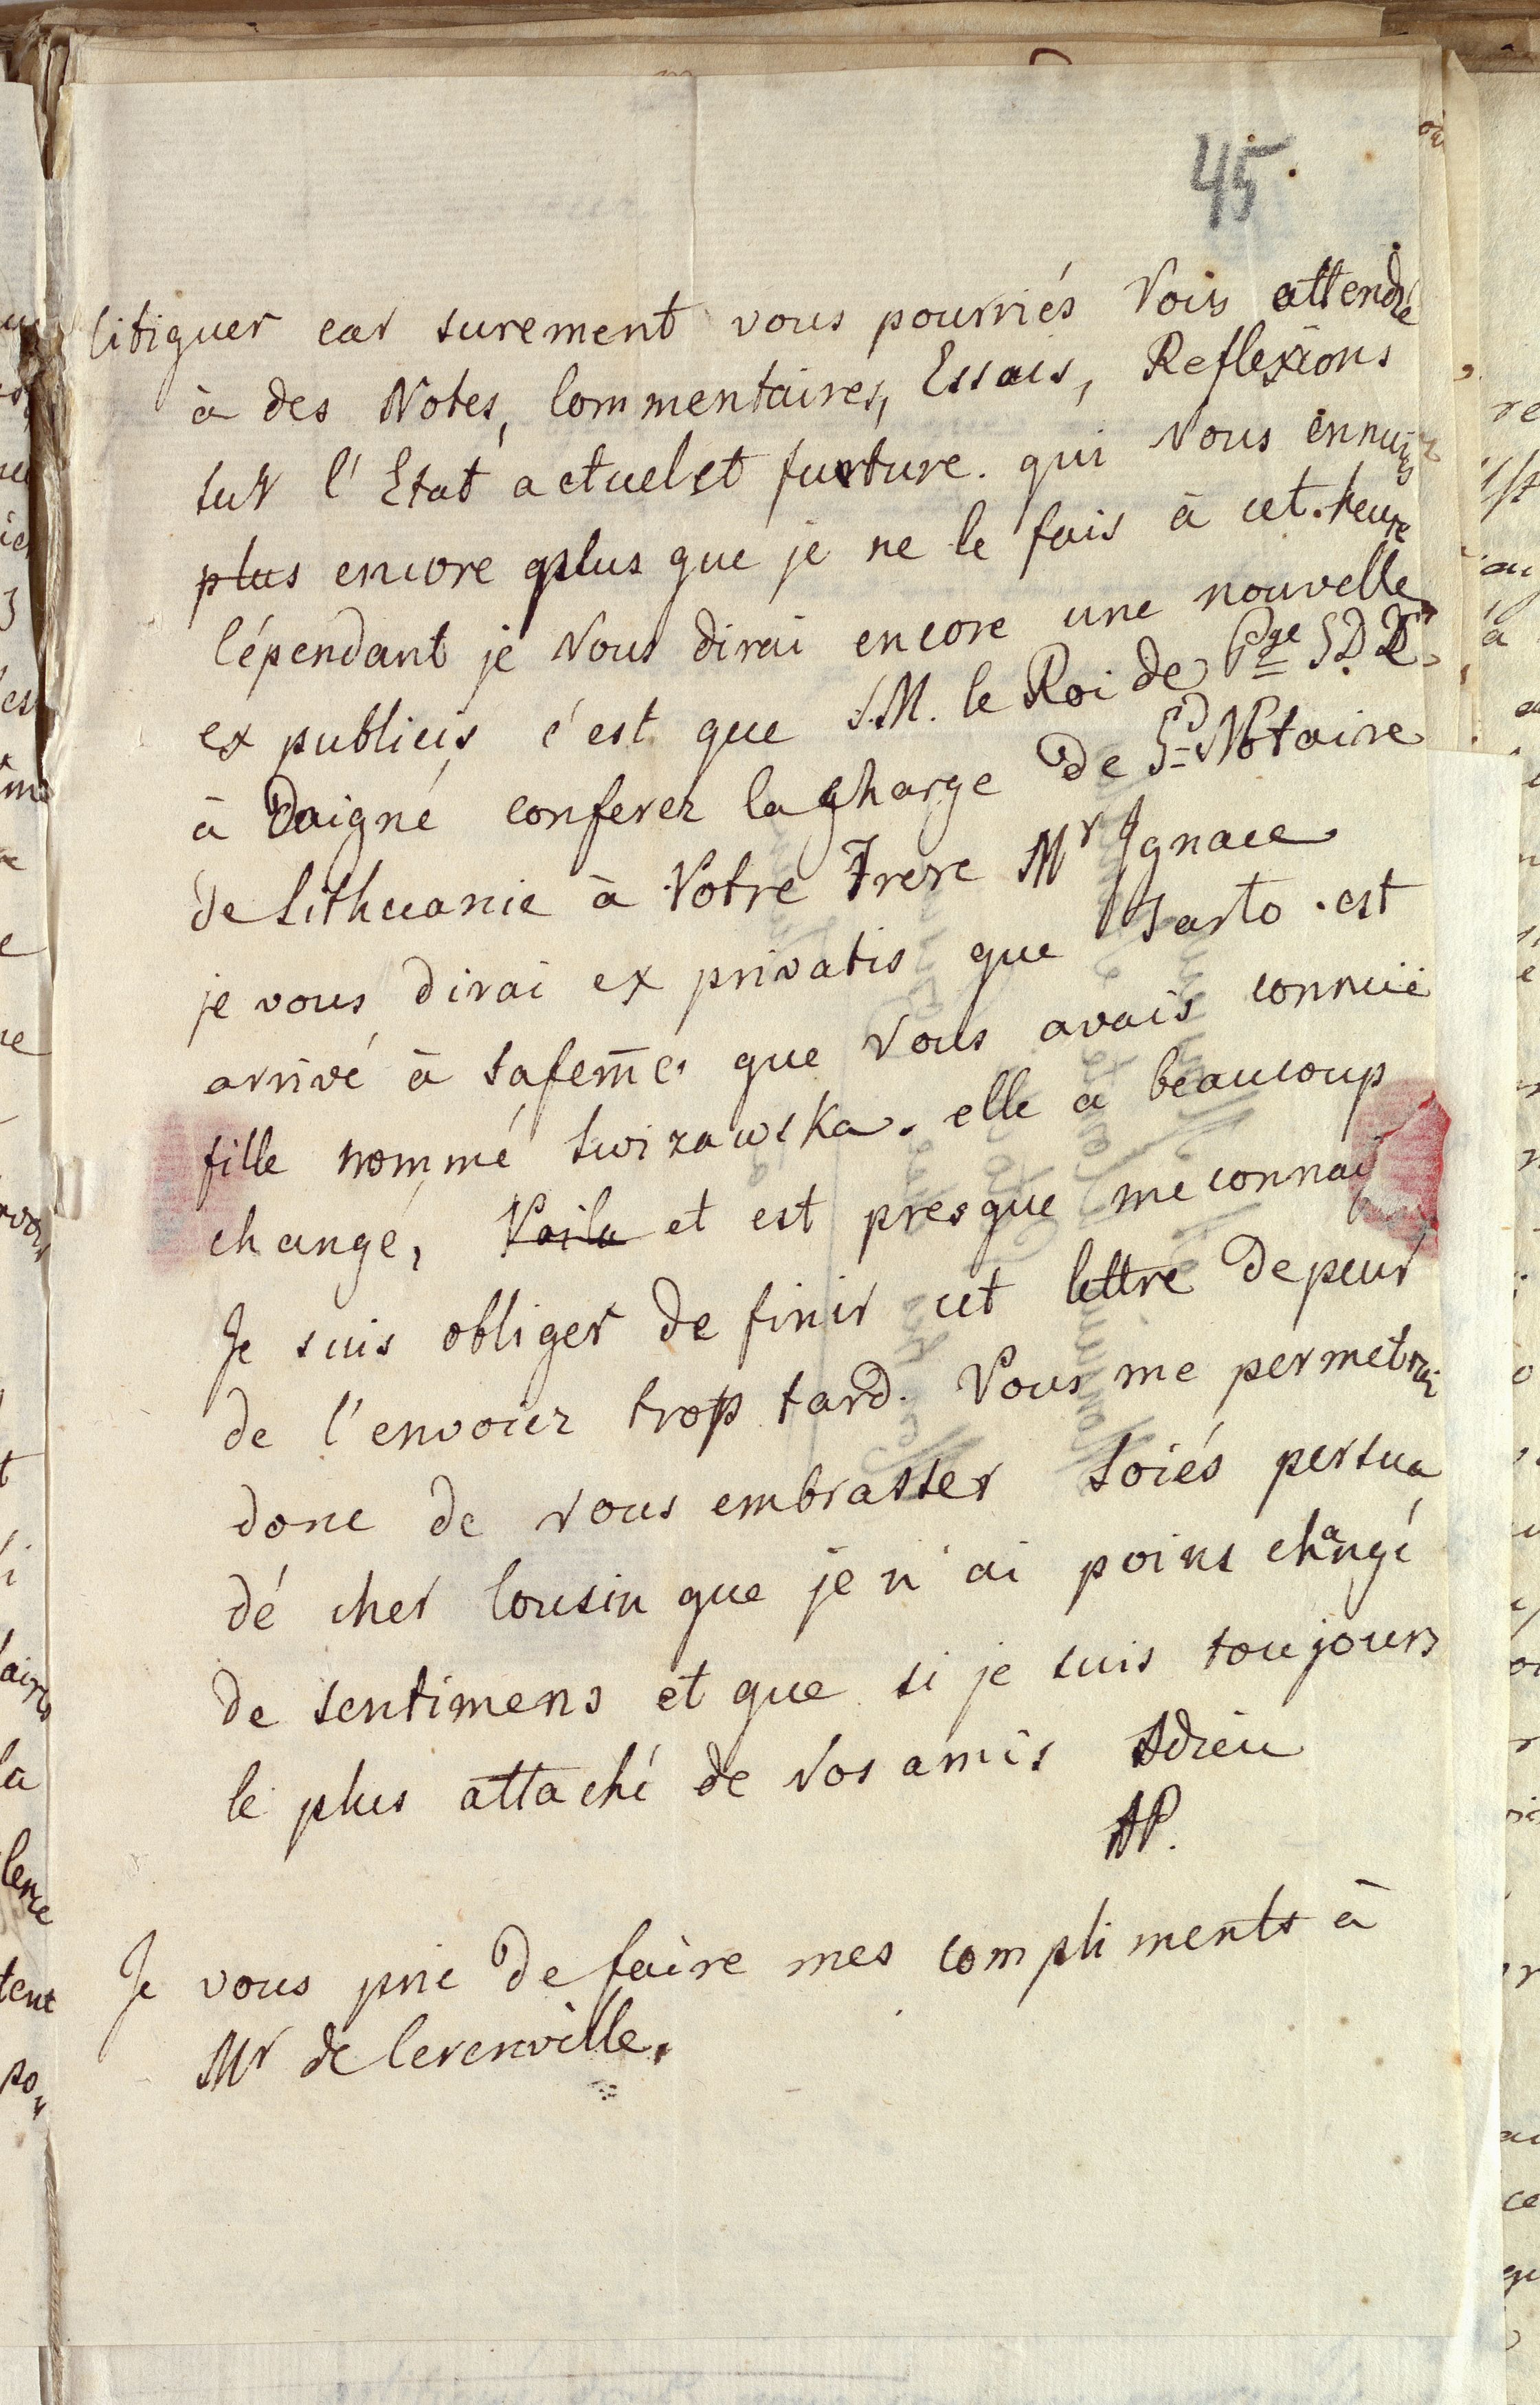 45.
litiguer car surement vous pourriés Vois attendre
à des Notes, Commentaires, Essais, Reflexions
sur l'Etat actuel et furture. qui Vous ennuies
plus encore plus que je ne le fais à cet. heure
Cépendant je Vous dirai encore une nouvelle
ex publicis, c'est que S.M. le Roi de Pgе S. D.
à Daigné conferer la charge de Gd Notaire
de Lithuanie à Votre Frere Mr Ignace
je vous dirai ex privatis que Sarto. est
arrivé à safem̄e. que Vous avais connuë
fille nommé Swirawska. elle a beaucoup
changé, Voila et est presque me connai
Je suis obliger de finir cet lettre depeur
de l'envoier trop tard. Vous me permetrai
donc de vous embrasser soiés persua
dé cher Cousin que je n'ai poins changé
de sentimens et que si je suis toujours
le plus attaché de Vos amis Adieu
AP.
Je vous prie de faire mes compliments à
Mr de Cerenville.